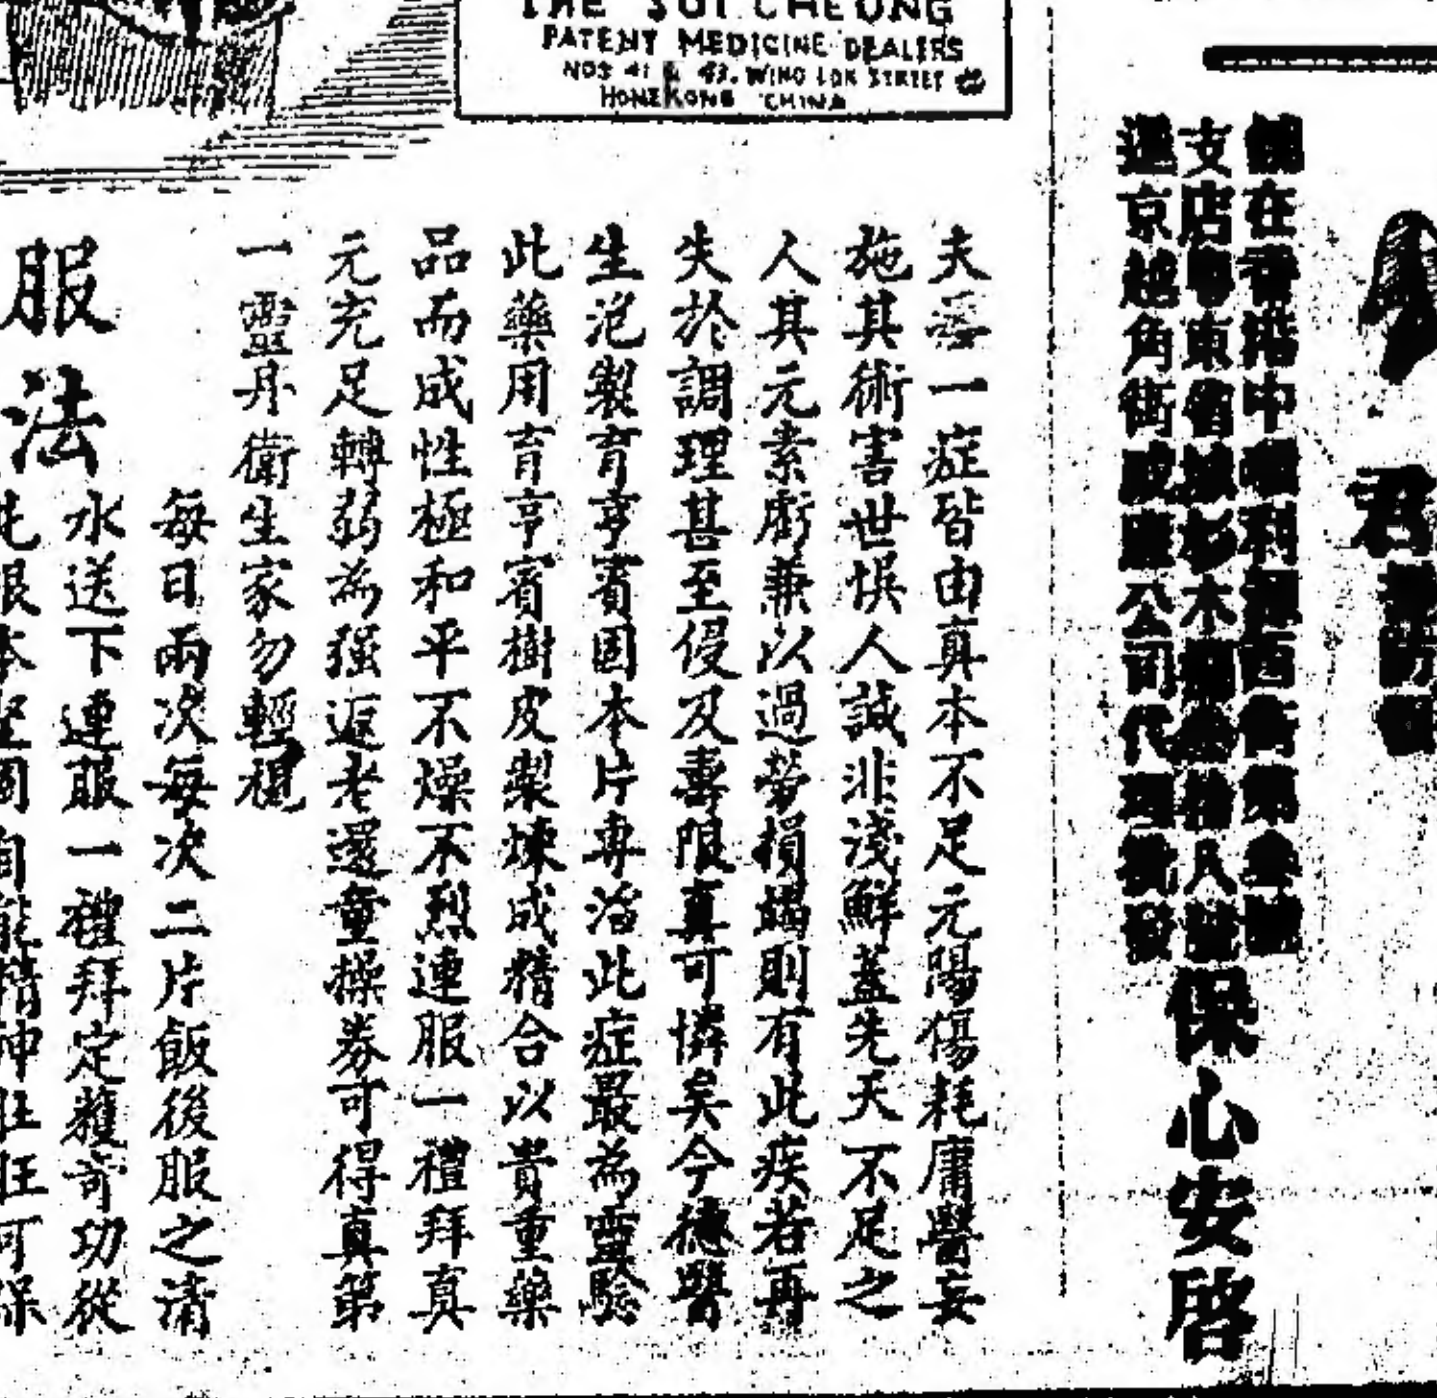 THE SUI CHEONG
PATENT MEDICINE DEALERS
NOS 41 & 43. WING LOK STREET
HONGKONG CHINA
君
在香港中 利 西街第
支店粵東省城杉木欄 拾八號
京越角街 公司代理 發
保心安啓
夫 一症皆由真本不足元陽傷耗庸醫妄
施其術害世悞人誠非淺鮮蓋先天不足之
人其元素虧兼以過勞損竭則有此疾若再
失於調理甚至侵及壽限真可憐矣今德醫
生泡製育亨賓固本片專治此症最為靈驗
此藥用育亨賓樹皮製煉成精合以貴重藥
品而成性極和平不燥不烈連服一禮拜真
元充足轉弱為强返老還童操券可得真第
一靈丹衛生家勿輕視
服法
每日兩次每次二片飯後服之清
水送下連服一禮拜定獲奇功從
根本堅固 能精神壯旺可保